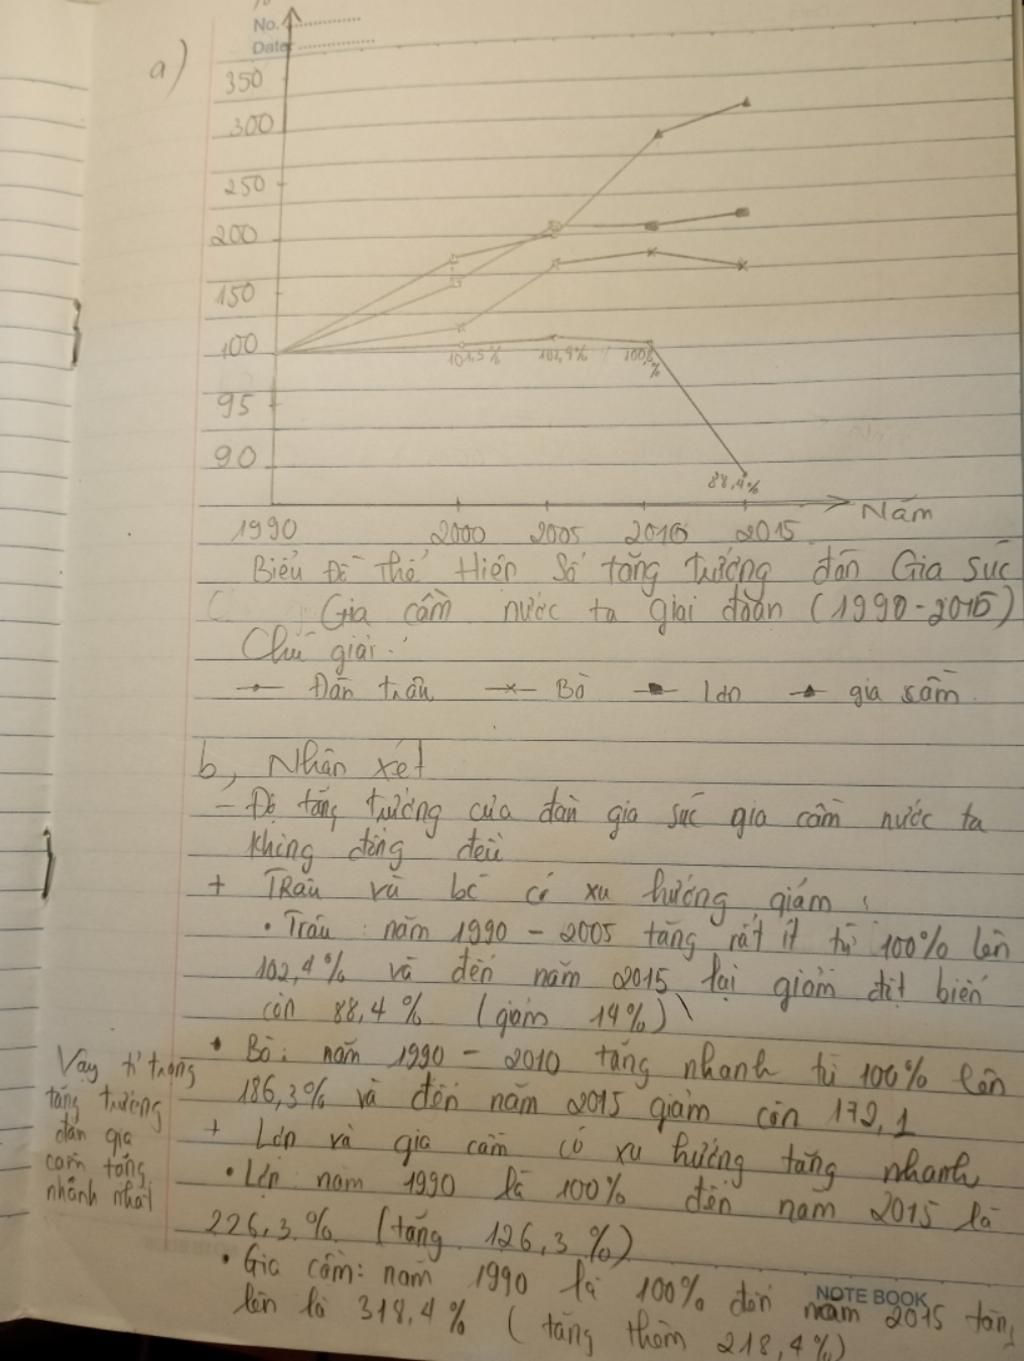 %
No.
Date
a)
350
300
250
200
150
100
95
90
101,5%
102,4%
100,8%
88,4%
1990 2000 2005 2010 2015 Năm
Biểu Đồ thể Hiện Số tăng trưởng đàn Gia súc
Gia cầm nước ta giai đoạn (1990-2015)
Chú giải:
Đàn trâu Bò Lợn gia cầm
b, Nhận xét
- Độ tăng trưởng của đàn gia súc gia cầm nước ta
không đồng đều
+ TRâu và bò có xu hướng giảm
• Trâu: năm 1990 - 2005 tăng rất ít từ 100% lên
102,4% và đến năm 2015 lại giảm đột biến
còn 88,4% (giảm 14%)
• Bò: năm 1990 - 2010 tăng nhanh từ 100% lên
186,3% và đến năm 2015 giảm còn 172,1
+ Lợn và gia cầm có xu hướng tăng nhanh
• Lợn năm 1990 là 100% đến năm 2015 là
226,3% (tăng 126,3%)
• Gia cầm: năm 1990 là 100% đến năm 2015 tăng
lên là 318,4% (tăng thêm 218,4%)
Vậy tỉ trọng
tăng trưởng
đàn gia
cầm tăng
nhanh nhất
NOTE BOOK